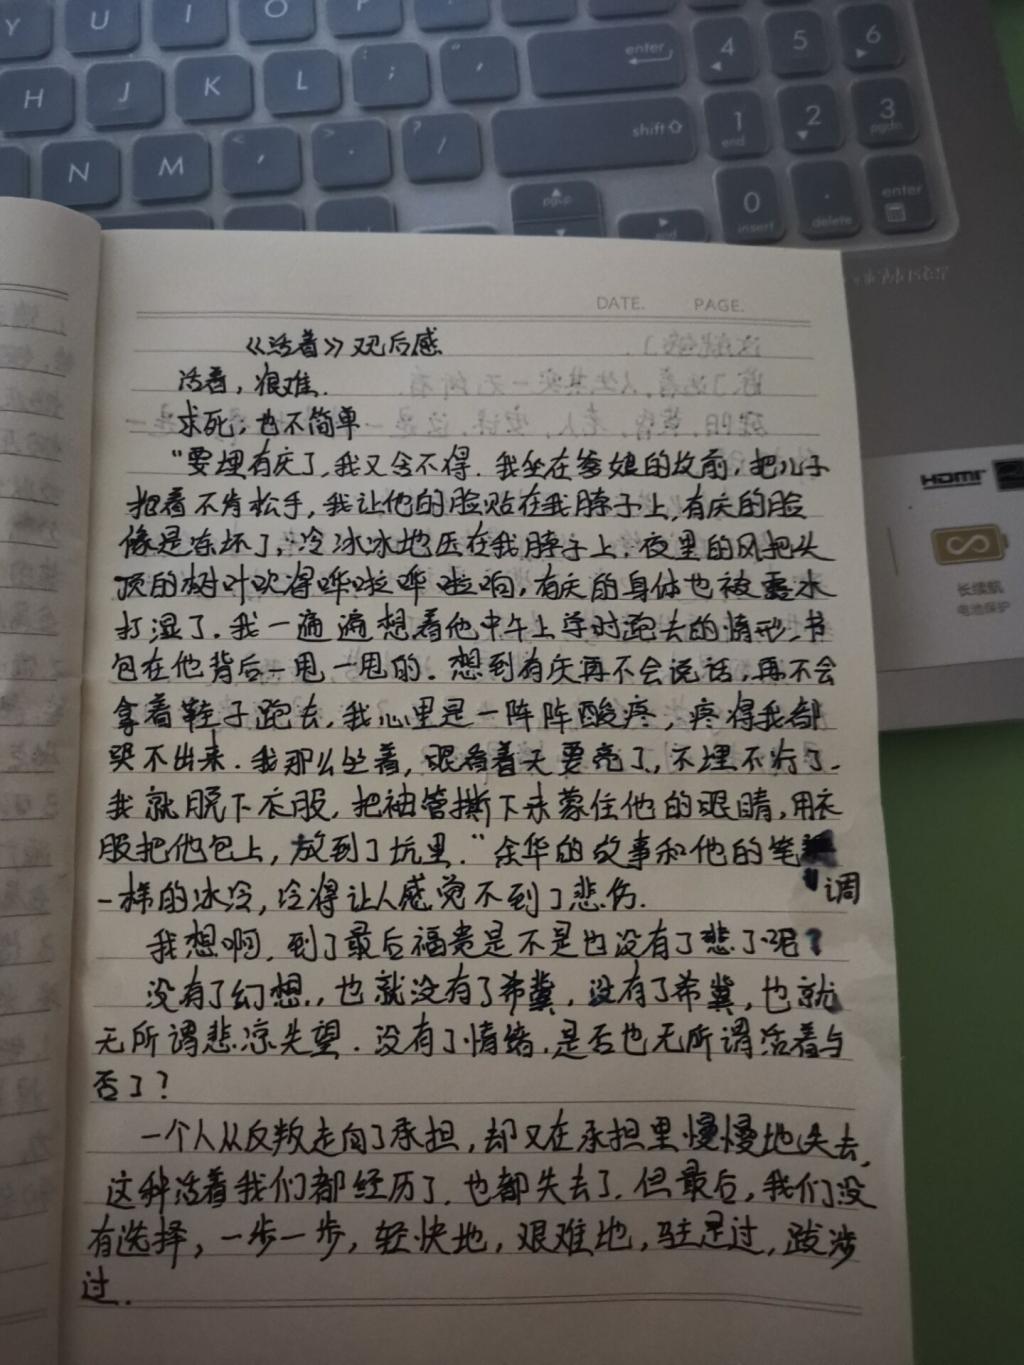 Y U I O P
enter
4 5 6
H J K L ; ,
1 end
2
3 pgdn
shift
N M < , > . ? /
pgup
end
0 insert
. delete
enter
DATE. PAGE.
HDMI
长续航
电池保护
《活着》观后感
活着，很难.
求死，也不简单
“要埋有庆了，我又舍不得. 我坐在爹娘的坟前，把儿子
抱着不肯松手，我让他的脸贴在我脖子上，有庆的脸
像是冻坏了，冷冰冰地压在我脖子上. 夜里的风把头
顶的树叶吹得哗啦哗啦响，有庆的身体也被露水
打湿了. 我一遍遍想着他中午上学时跑去的情形，书
包在他背后一甩一甩的. 想到有庆再不会说话，再不会
拿着鞋子跑去，我心里是一阵阵酸疼，疼得我都
哭不出来. 我那么坐着，眼看着天要亮了，不埋不行了.
我就脱下衣服，把袖管撕下来蒙住他的眼睛，用衣
服把他包上，放到了坑里.” 余华的故事和他的笔
调
一样的冰冷，冷得让人感觉不到了悲伤.
我想啊，到了最后福贵是不是也没有了悲了呢？
没有了幻想，也就没有了希冀，没有了希冀，也就
无所谓悲凉失望. 没有了情绪，是否也无所谓活着与
否了？
一个人从反叛走向了承担，却又在承担里慢慢地失去，
这种活着我们都经历了，也都失去了. 但最后，我们没
有选择，一步一步，轻快地，艰难地，驻足过，跋涉
过.